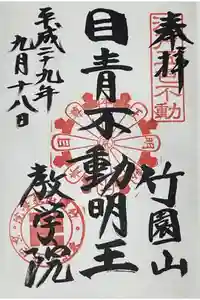 奉拝
竹園山
目青不動明王
教学院
平成二十九年
九月十八日